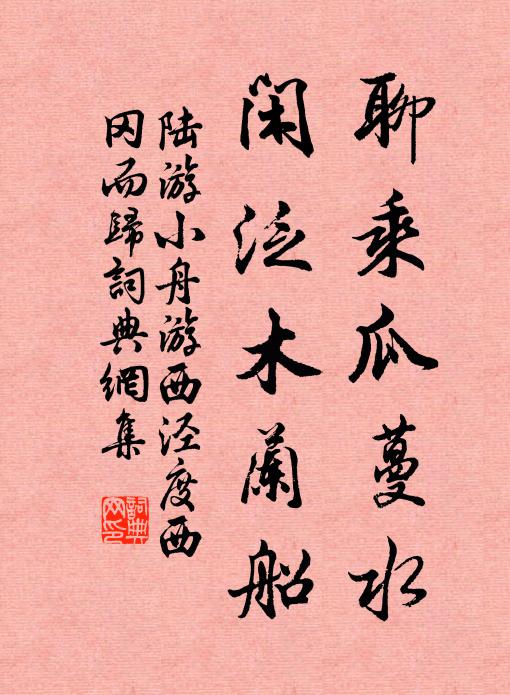 聊乘瓜蔓水
闲泛木蘭船
陆游小舟游西泾度西
冈而歸詞典網集
詞典网印